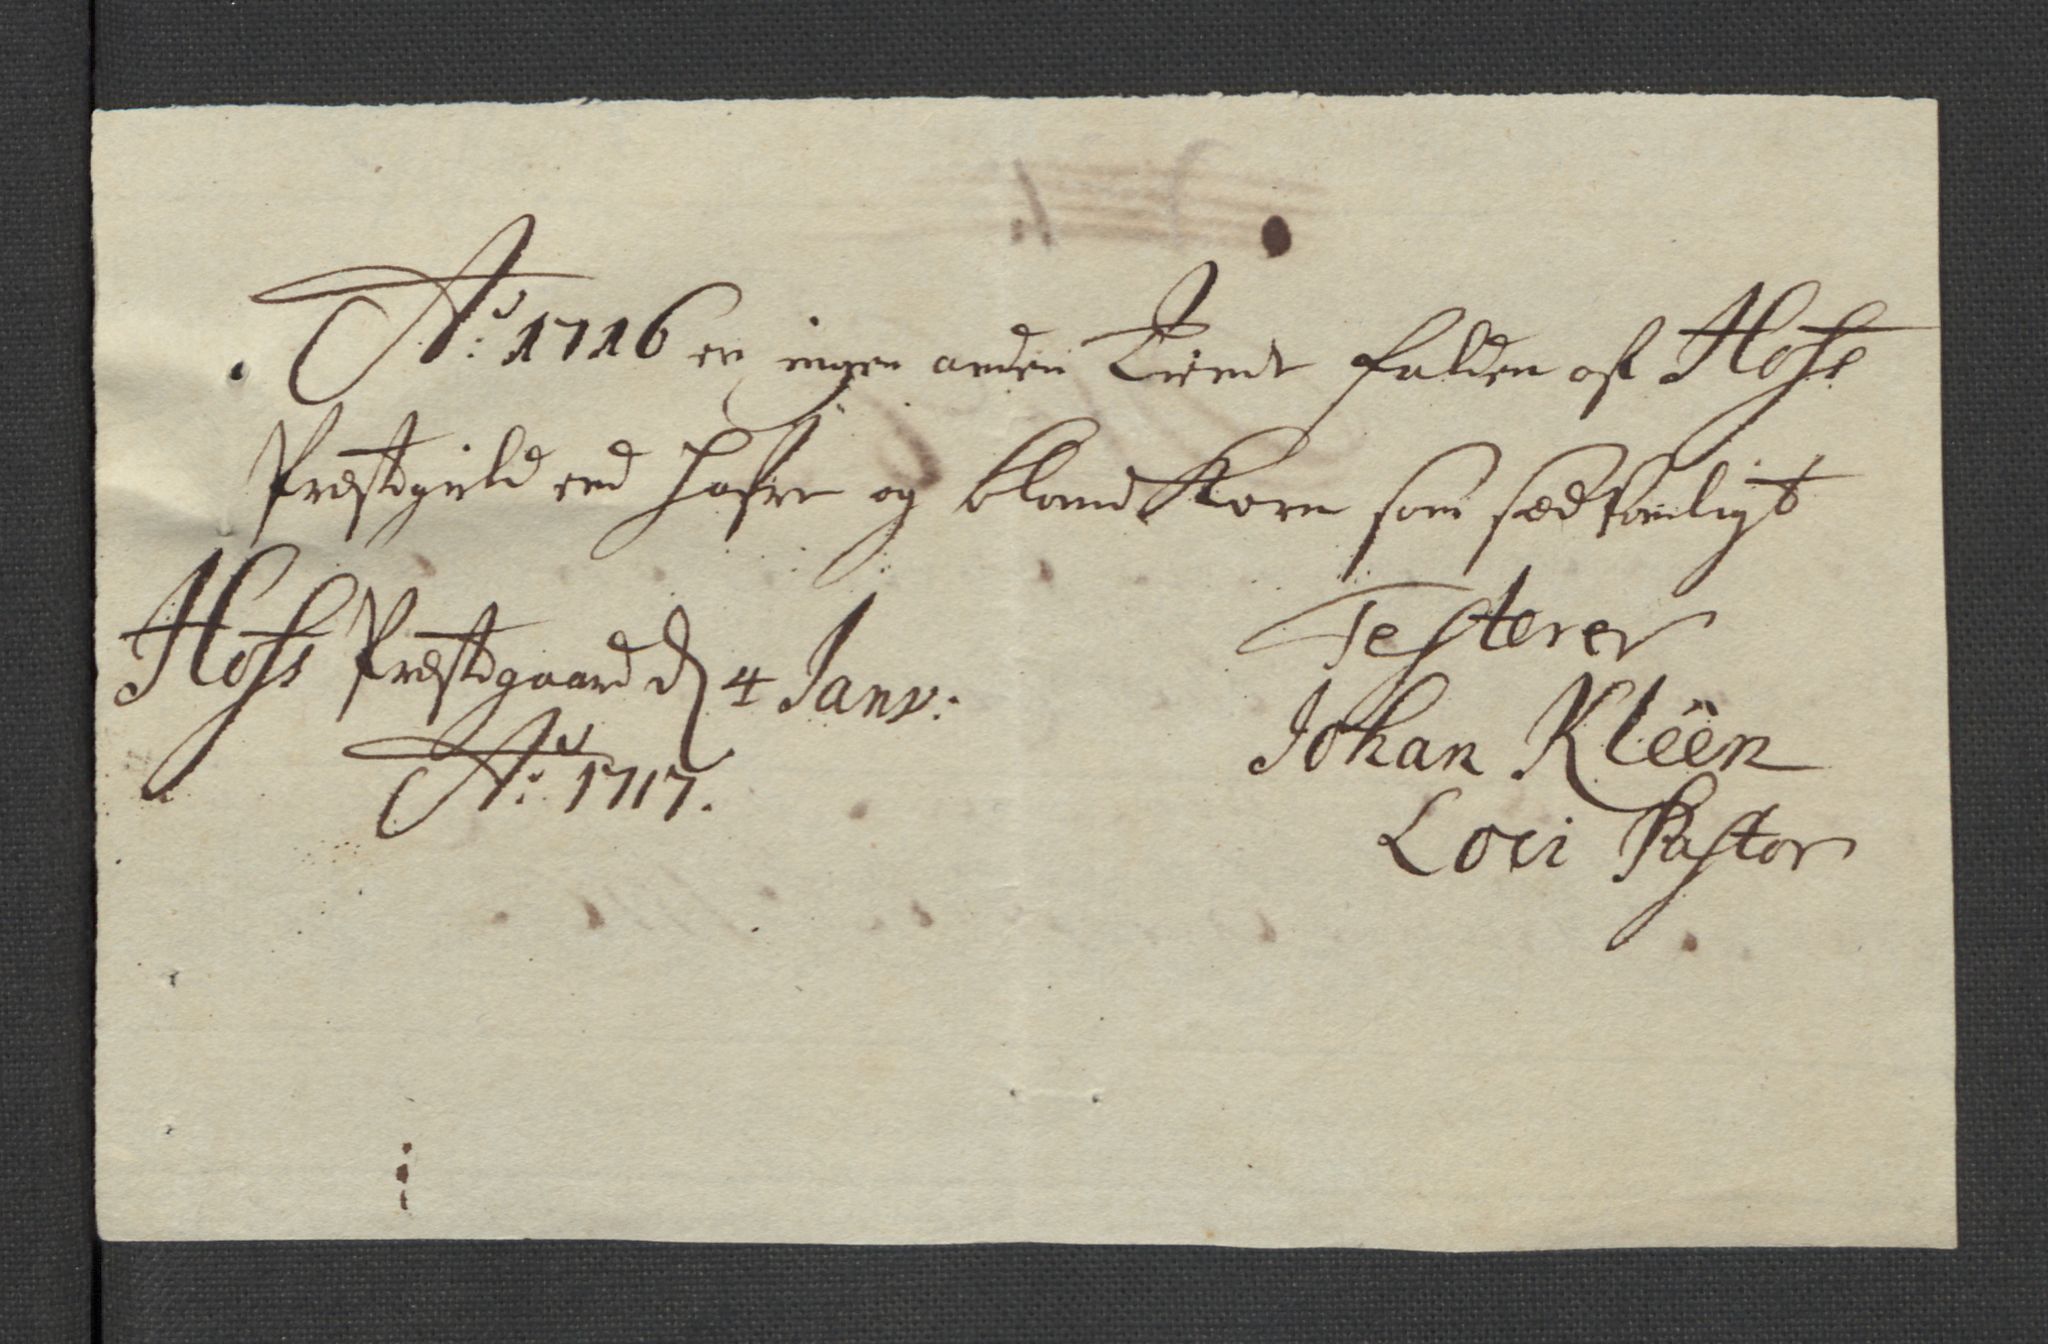 Ao: 1716 er ingen anden Tiende falden af Hofs
Præstegield end Hafre og bland Korn som sædvanligt
Testerer
Hofs Præstegaard d 4 Janv:
Ao: 1717.
Johan Klëen
Loci Pastor